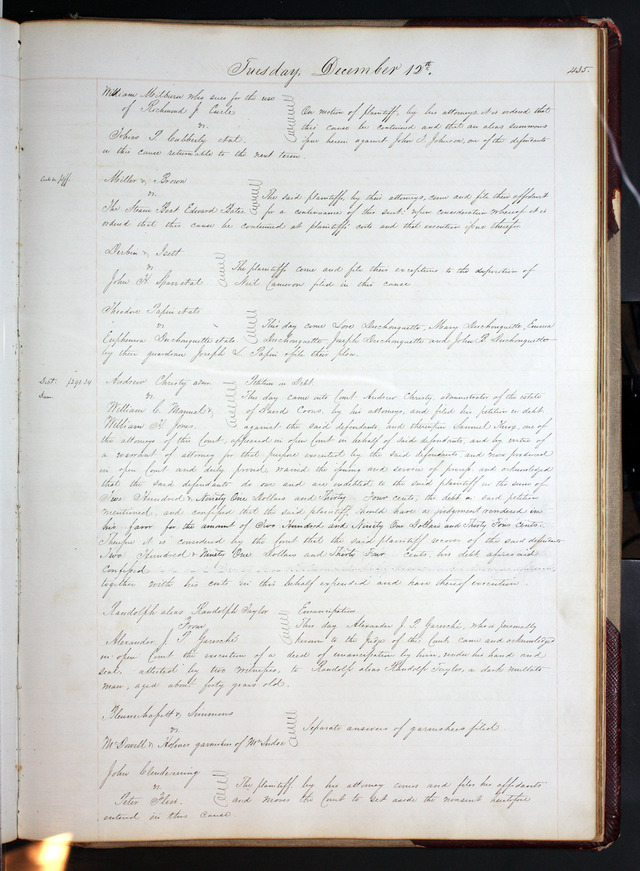 Tuesday, December 12th.
435.
William Milburn who sues for the use
of Richmond J. Curle
vs.
Tobias P. Cubberly et al.
On motion of plaintiff, by his attorneys it is ordered that
this cause be continued and that an alias summons
issue herein against John S. Johnson, one of the defendants
in this cause returnable to the next term.
Miller & Brown
vs.
The Steam Boat Edward Bates
The said plaintiffs, by their attorneys, come and file their affidavit
for a continuance of this suit. Upon consideration whereof it is
ordered that this cause be continued at plaintiffs costs and that execution issue therefor
& Isett
vs
John H. et al
The plaintiffs come and file their exceptions to the deposition of
Neil Cameron filed in this cause
Theodore Papin et als
vs
Euphrasia Duchouquette et als
This day come Love Duchouquette, Mary Duchouquette, Emma
Duchouquette, Joseph Duchouquette and John B. Duchouquette
by their guardian Joseph L. Papin & file their plea.
Andrew Christy admr
vs.
William C. &
William H. Jones.
Petition in Debt
This day came into Court Andrew Christy, administrator of the estate
of David Coons, by his attorneys, and filed his petition in debt
against the said defendants, and thereupon Samuel Knox, one of
the attorneys of this Court, appeared in open Court in behalf of said defendants, and by virtue of
a warrant of attorney for that purpose executed by the said defendants and now produced
in open Court and duly proved, waived the issuing and service of process, and acknowledged
that the said defendants do owe and are indebted to the said plaintiff in the sum of
Two Hundred & Ninety One Dollars and Thirty Four cents, the debt in said petition
mentioned, and confessed that the said plaintiff should have a judgment rendered in
his favor for the amount of Two Hundred and Ninety One Dollars and Thirty Four cents.
Therefore it is considered by the Court that the said plaintiff recover of the said defendants
Two Hundred & Ninety One Dollars and Thirty Four cents, his debt aforesaid
confessed
together with his costs in this behalf expended and have thereof execution.
Randolph alias Randolph Taylor
From
Alexander J. P. Garesché
Emancipation
This day Alexander J. P. Garesché, who is personally
known to the Judge of this Court, came and acknowledged
in open Court the execution of a deed of emancipation by him, under his hand and
seal, attested by two witnesses, to Randolph alias Randolph Taylor, a dark mulatto
man, aged about forty years old.
Blennerhassett & Simmons
vs.
McDowell & Holmes garnishees of
Separate answers of garnishees filed
John Clendenning
vs.
Peter
The plaintiff, by his attorney comes and files his affidavits
and moves the Court to set aside the nonsuit heretofore
entered in this cause